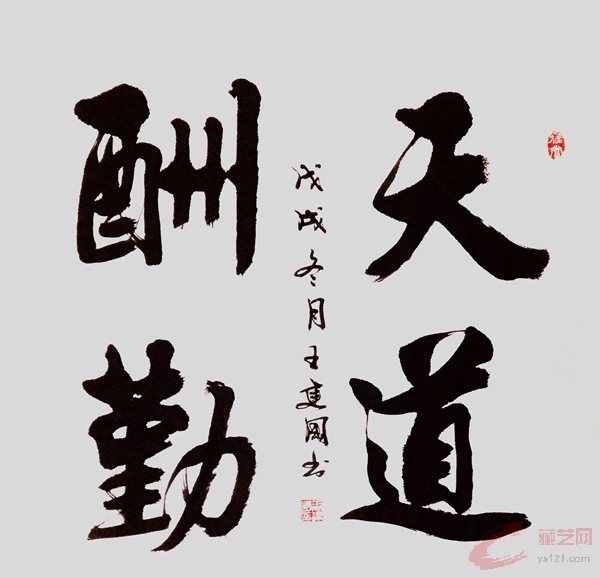 天道
酬勤
戊戌冬月王建国书
藏艺网
ys121.com